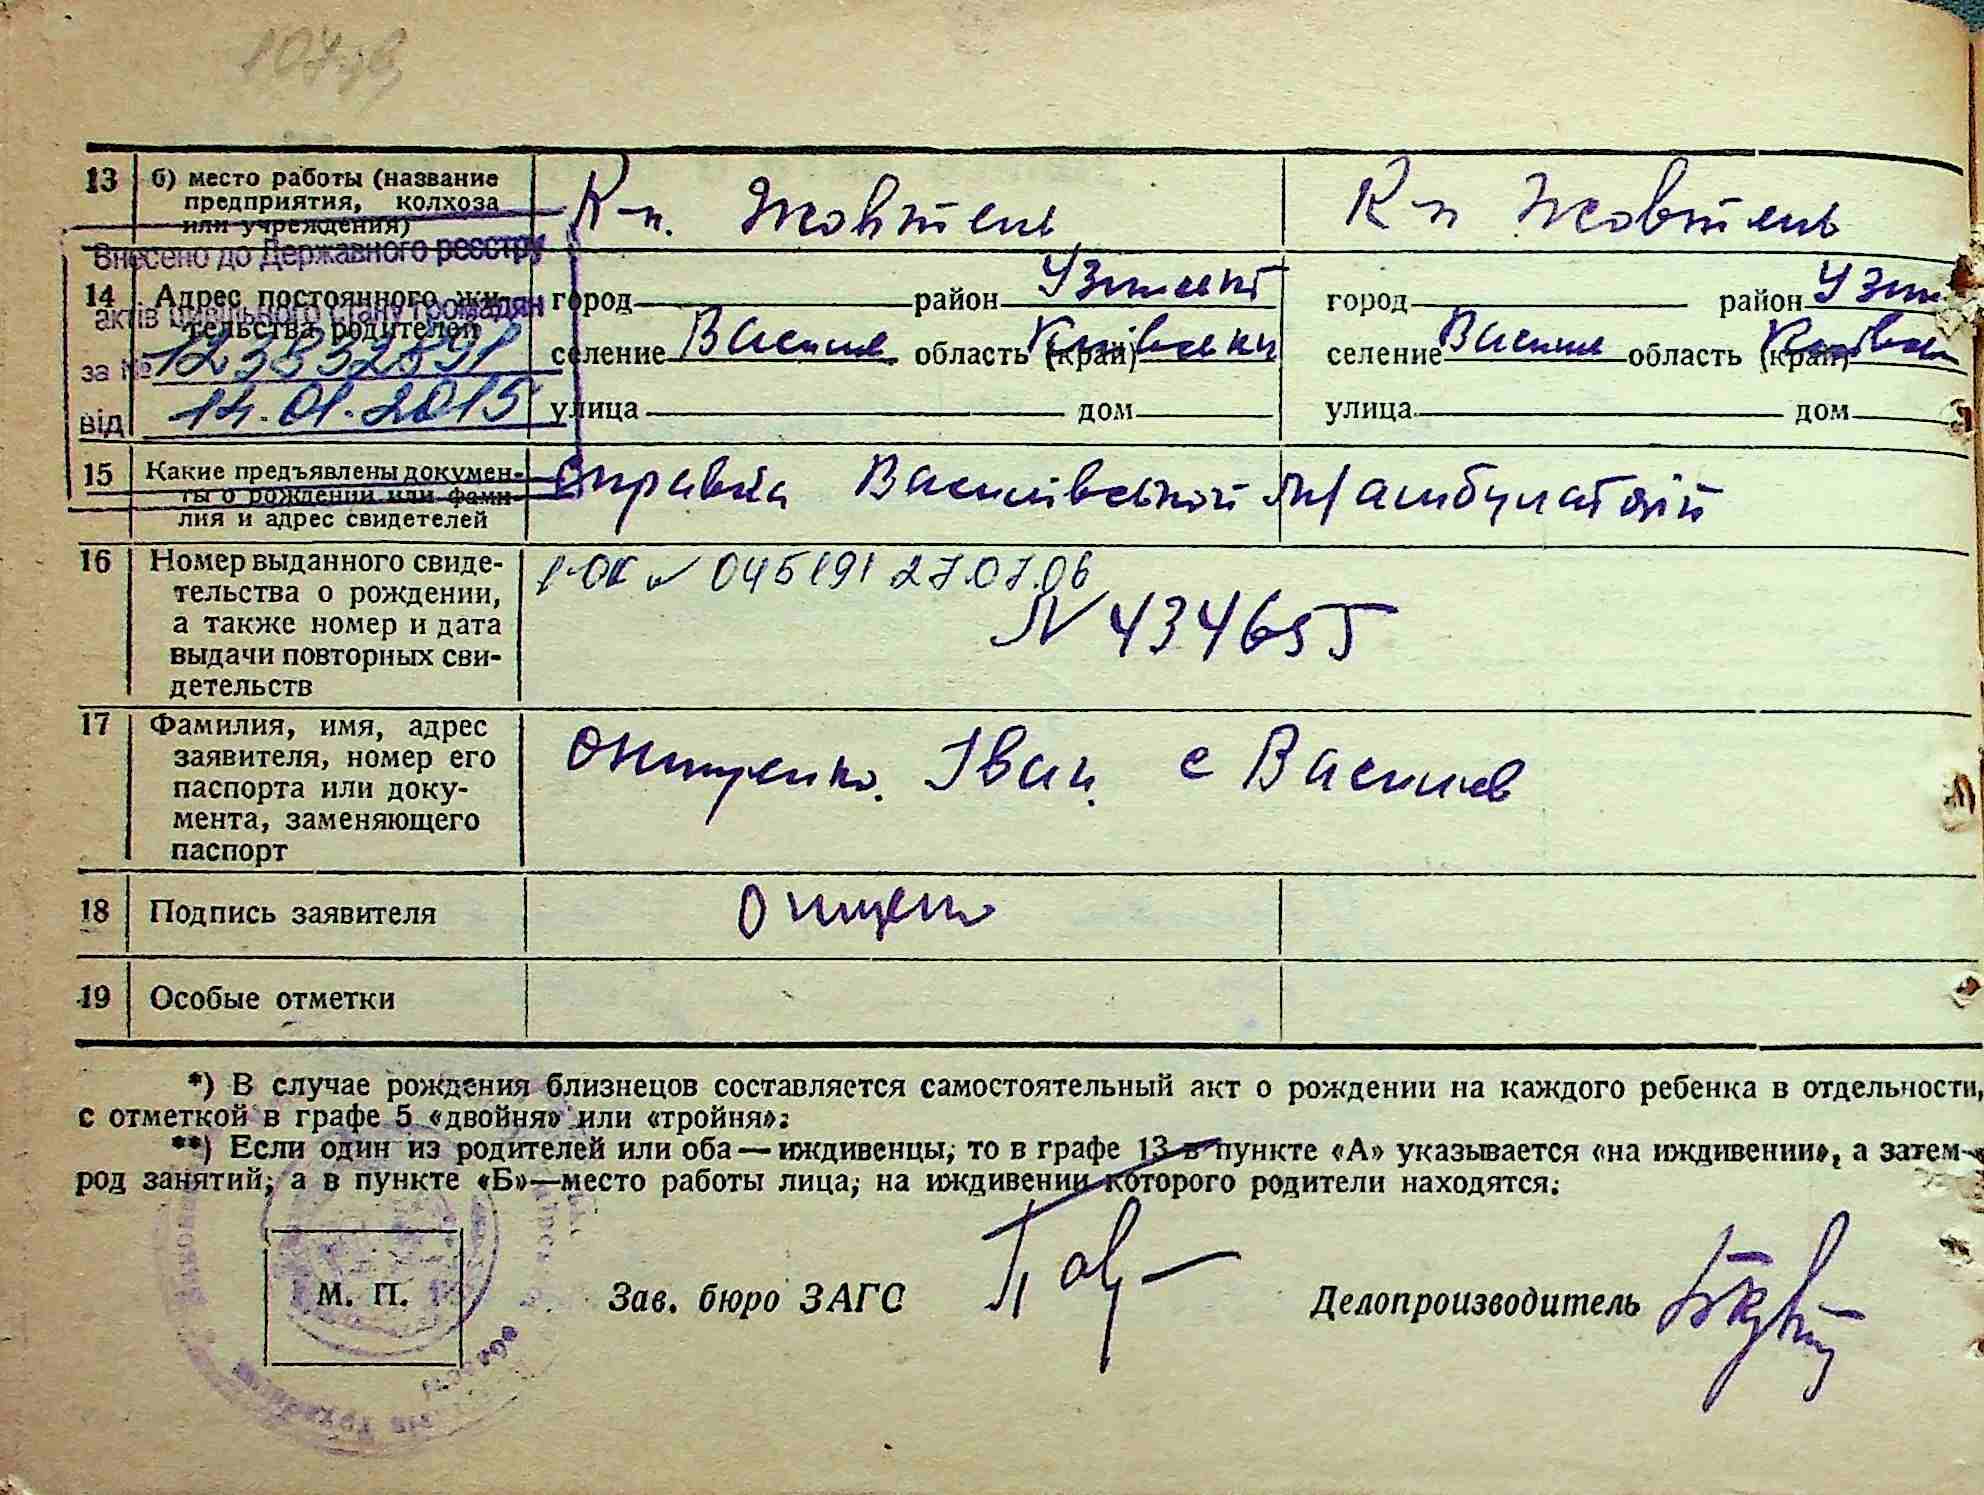 13 б) место работы (название предприятия, колхоза или учреждения) К-п. Жовтень К-п Жовтень
Внесено до Державного реєстру
актів цивільного стану громадян
за №
від 14.01.2015
14 Адрес постоянного жительства родителей
город район Узинськ город район Узин
селение Васил область (край) Київськ селение Васил область (край) Київськ
улица дом улица дом
15 Какие предъявлены документы о рождении или фамилия и адрес свидетелей
Справка Василівської амбулаторії
16 Номер выданного свидетельства о рождении, а также номер и дата выдачи повторных свидетельств
045191 27.07.06
N 434655
17 Фамилия, имя, адрес заявителя, номер его паспорта или документа, заменяющего паспорт
Онищенко Іван с Василів
18 Подпись заявителя
19 Особые отметки
*) В случае рождения близнецов составляется самостоятельный акт о рождении на каждого ребенка в отдельности,
с отметкой в графе 5 «двойня» или «тройня»;
**) Если один из родителей или оба — иждивенцы, то в графе 13 в пункте «А» указывается «на иждивении», а затем—
род занятий, а в пункте «Б»—место работы лица, на иждивении которого родители находятся.
М. П. Зав. бюро ЗАГС Делопроизводитель